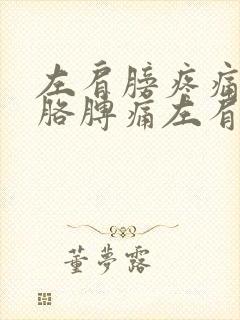 左肩膀疼痛
胳脾痛左肩
董夢露